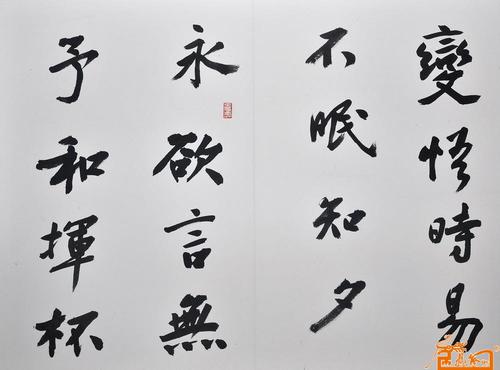 變悟時易
不眠知夕
永欲言無
予和揮杯